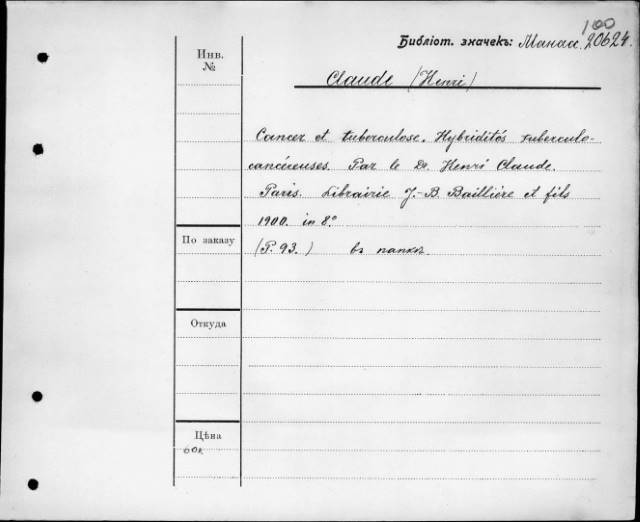 100
Библіот. значекъ: Манас. 20624.
Инв.
№
Claude (Henri)
Cancer et tuberculose. Hybridités tuberculo-
cancéreuses. Par le Dr. Henri Claude.
Paris. Librairie J.-B. Baillière et fils
1900. in 8°
По заказу
(P. 93.) въ папкѣ.
Откуда
Цѣна
60к